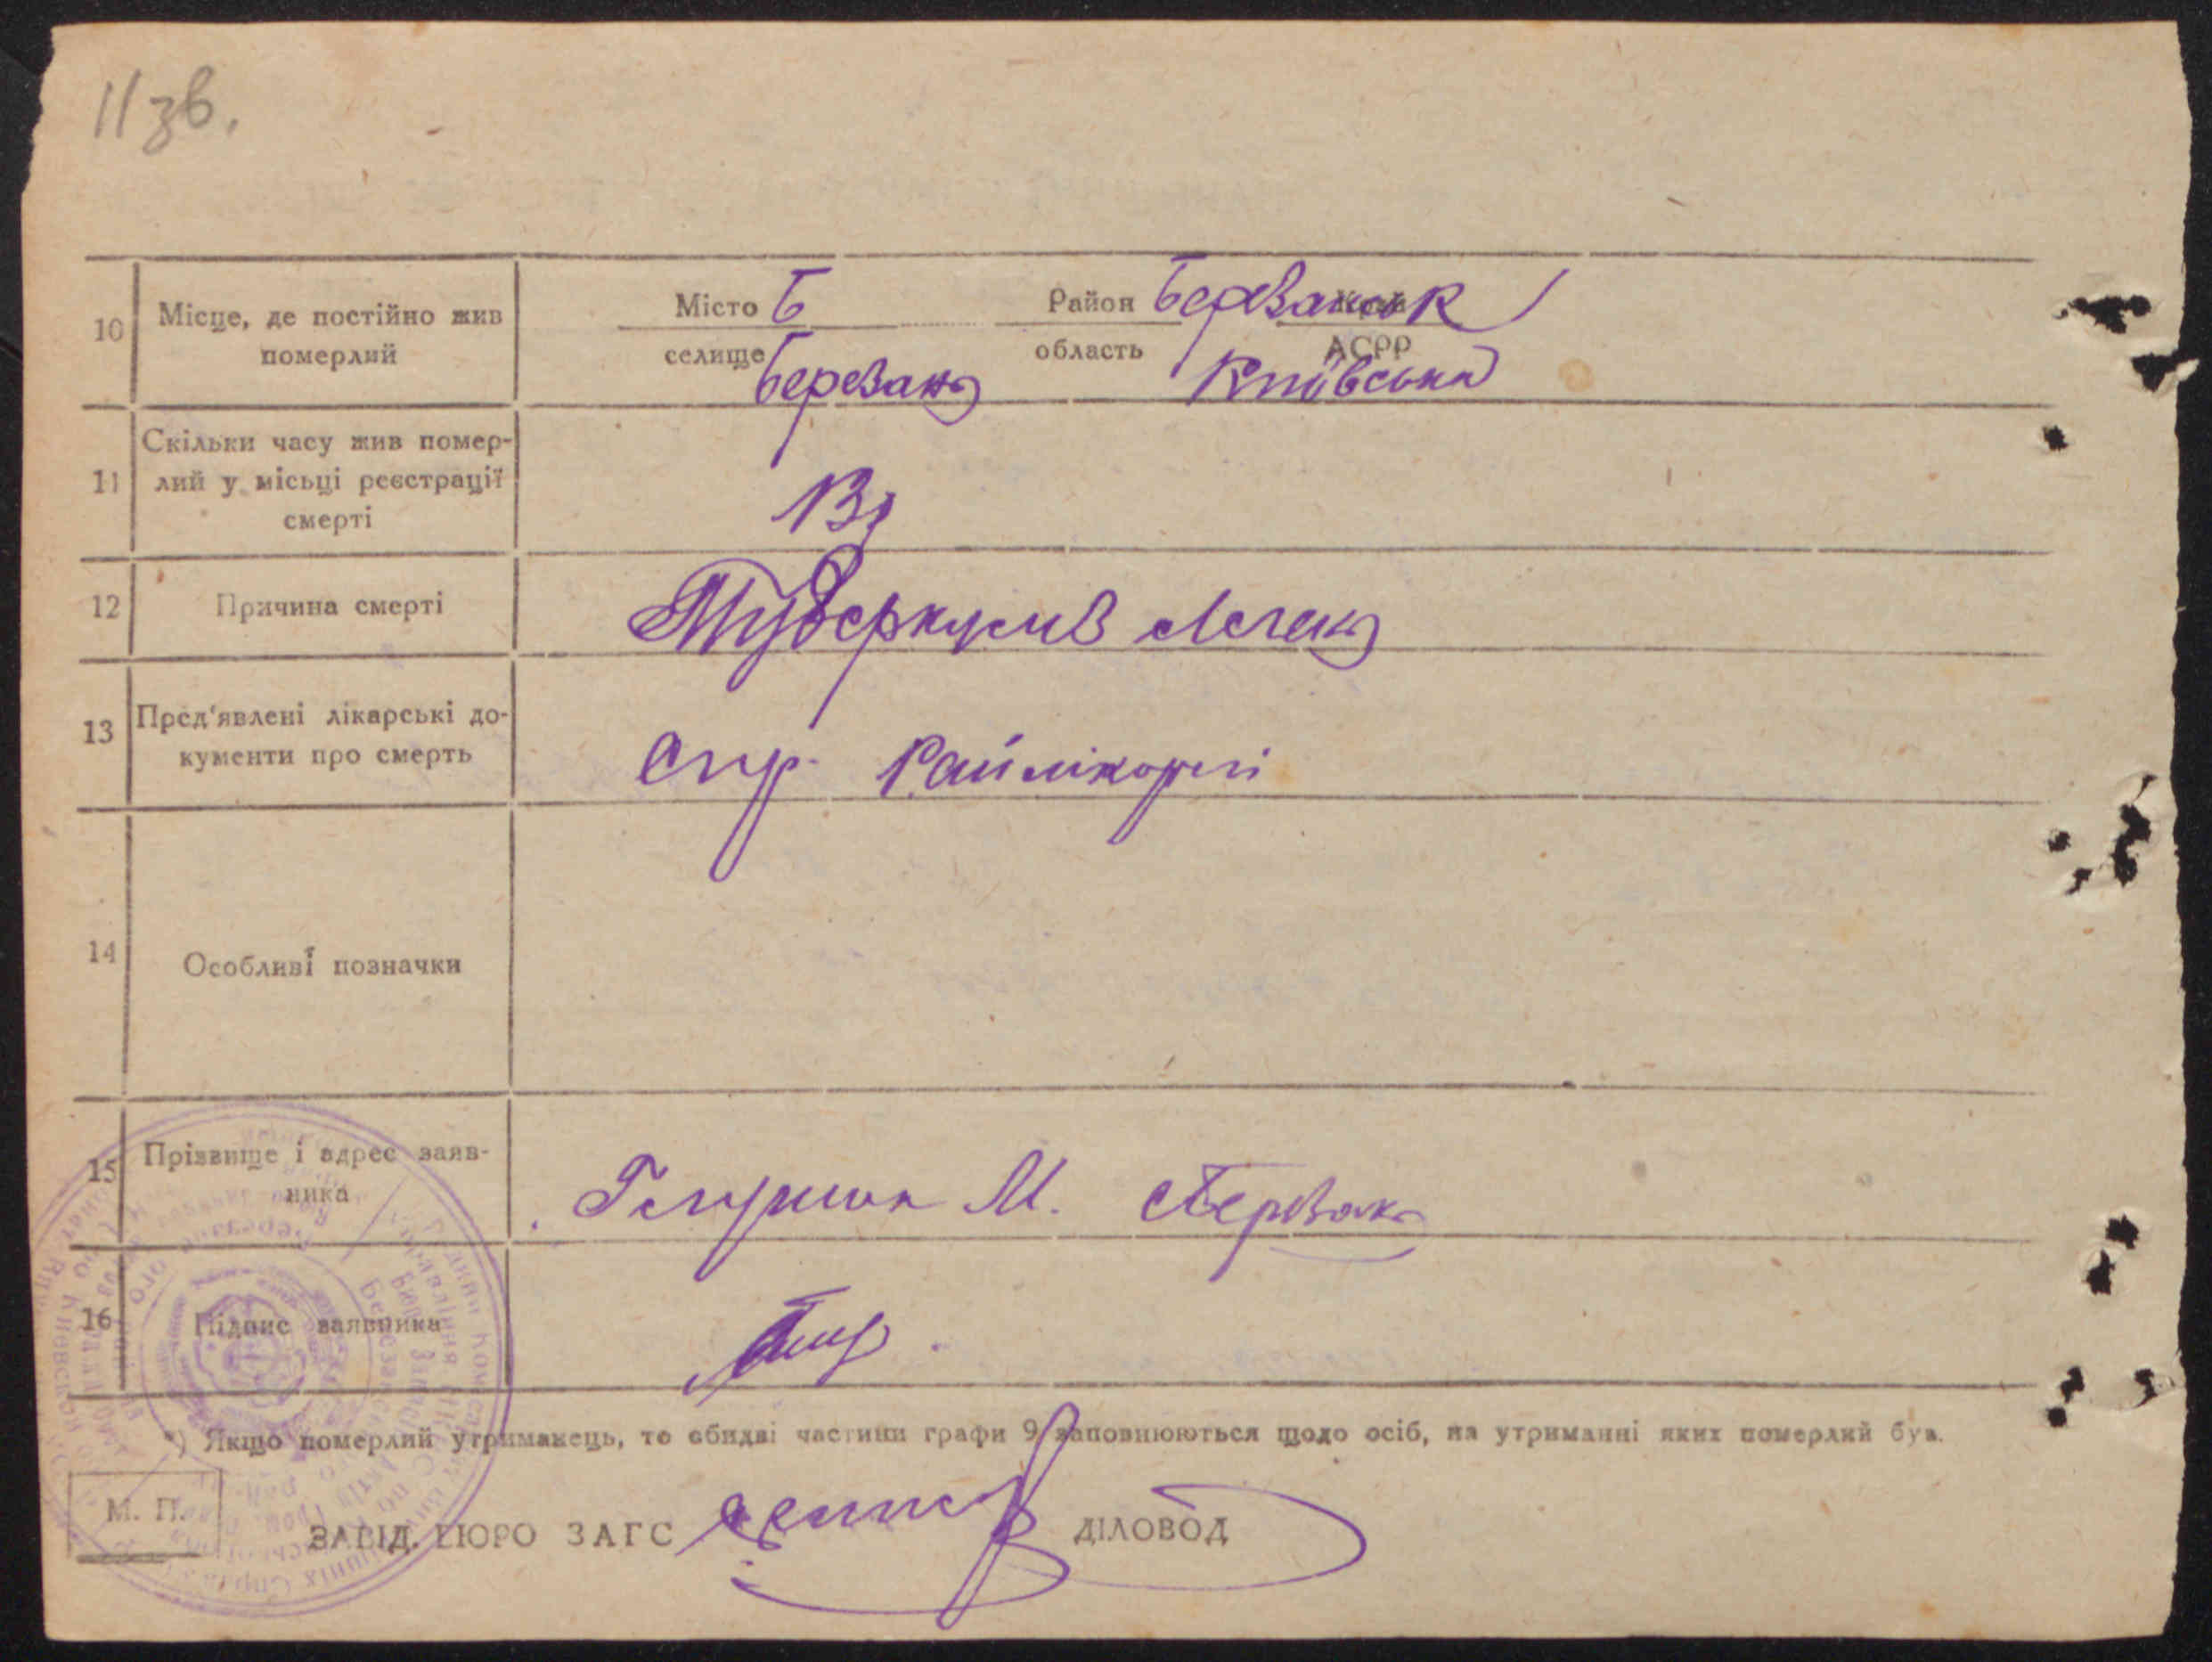 11зв.
10 Місце, де постійно жив померлий
Місто Б Район Березанськ Край
селище Березань область Київська АСРР
11 Скільки часу жив помер-
лий у місьці реєстрації
смерті
13
12 Причина смерті Туберкульоз Леген
13 Пред'явлені лікарські до-
кументи про смерть
Спр. Райлікарні
14 Особливі позначки
15 Прізвище і адрес заяв-
ника
М. Березань
16 Підпис заявника
*) Якщо померлий утриманець, то обидві частини графи 9 заповнюються щодо осіб, на утриманні яких померлий був.
М. П.
ЗАВІД. БЮРО ЗАГС ДІЛОВОД